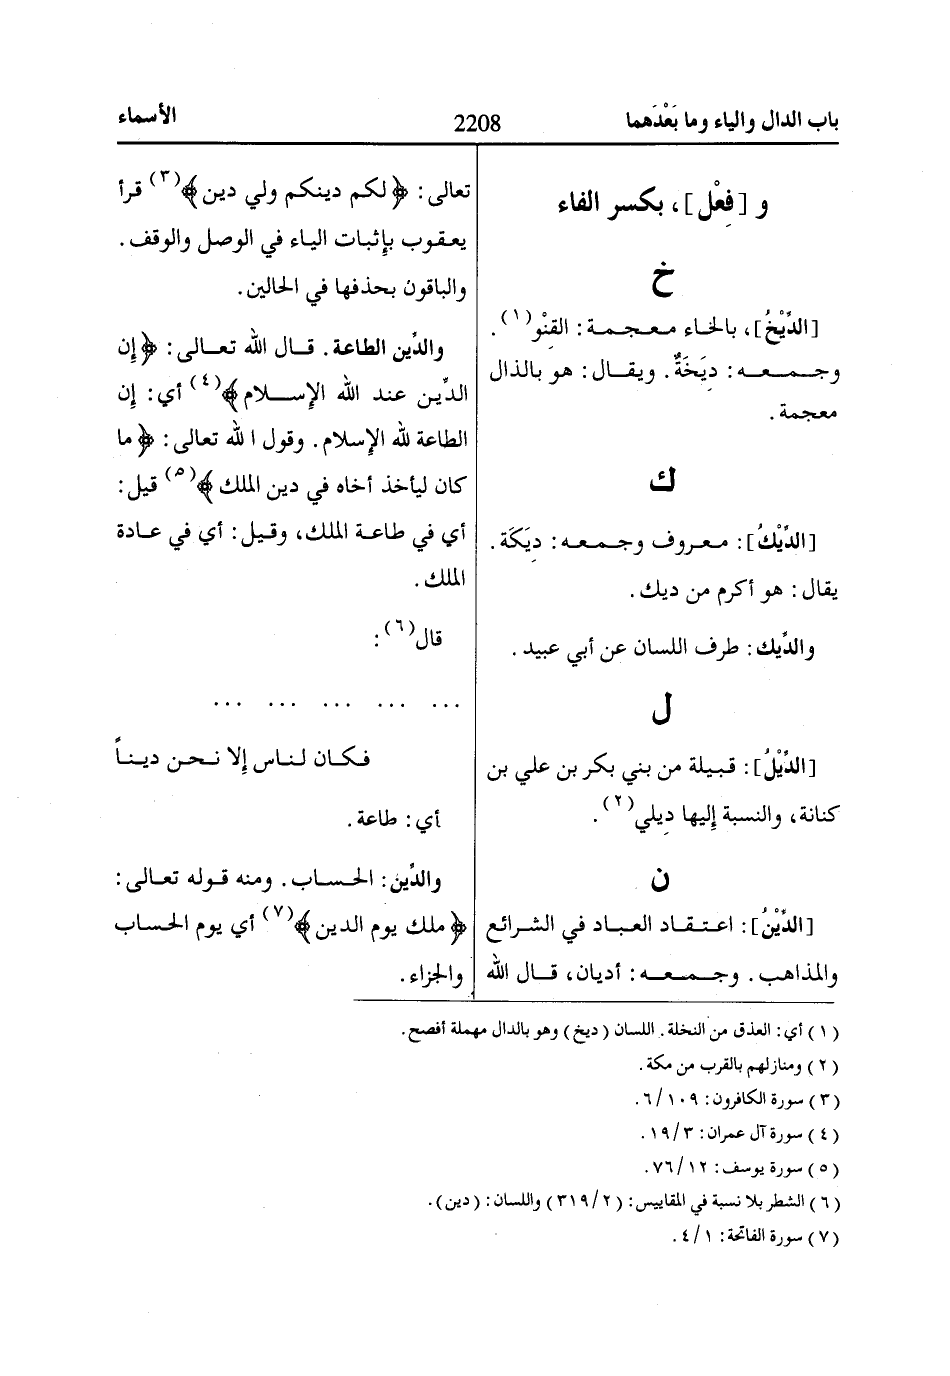 باب الدال والياء وما بَعْدَهما
2208
الأسماء
و [فِعْل]، بكسر الفاء
خ
[الدِّيْخُ]، بالخاء معجمة: القِنْو(١).
وجمعه: دِيَخَةٌ. ويقال: هو بالذال
معجمة.
ك
[الدِّيْكُ]: معروف وجمعه: دِيَكَة.
يقال: هو أكرم من ديك.
والدِّيك: طرف اللسان عن أبي عبيد.
ل
[الدِّيْلُ]: قبيلة من بني بكر بن علي بن
كنانة، والنسبة إليها دِيلي(٢).
ن
[الدِّيْنُ]: اعتقاد العباد في الشرائع
والمذاهب. وجمعه: أديان، قال الله
تعالى: ﴿لكم دينكم ولي دين﴾(٣) قرأ
يعقوب بإثبات الياء في الوصل والوقف.
والباقون بحذفها في الحالين.
والدِّين الطاعة. قال الله تعالى: ﴿إن
الدِّين عند الله الإسلام﴾(٤) أي: إن
الطاعة لله الإسلام. وقول الله تعالى: ﴿ما
كان ليأخذ أخاه في دين الملك﴾(٥) قيل:
أي في طاعة الملك، وقيل: أي في عادة
الملك.
قال(٦):
... ... ... ... ...
فكان لناس إلا نحن ديناً
أي: طاعة.
والدِّين: الحساب. ومنه قوله تعالى:
﴿ملك يوم الدين﴾(٧) أي يوم الحساب
والجزاء.
(١) أي: العذق من النخلة. اللسان (ديخ) وهو بالدال مهملة أفصح.
(٢) ومنازلهم بالقرب من مكة.
(٣) سورة الكافرون: ١٠٩/٦.
(٤) سورة آل عمران: ٣/١٩.
(٥) سورة يوسف: ١٢/٧٦.
(٦) الشطر بلا نسبة في المقاييس: (٢/٣١٩) واللسان: (دين).
(٧) سورة الفاتحة: ١/٤.